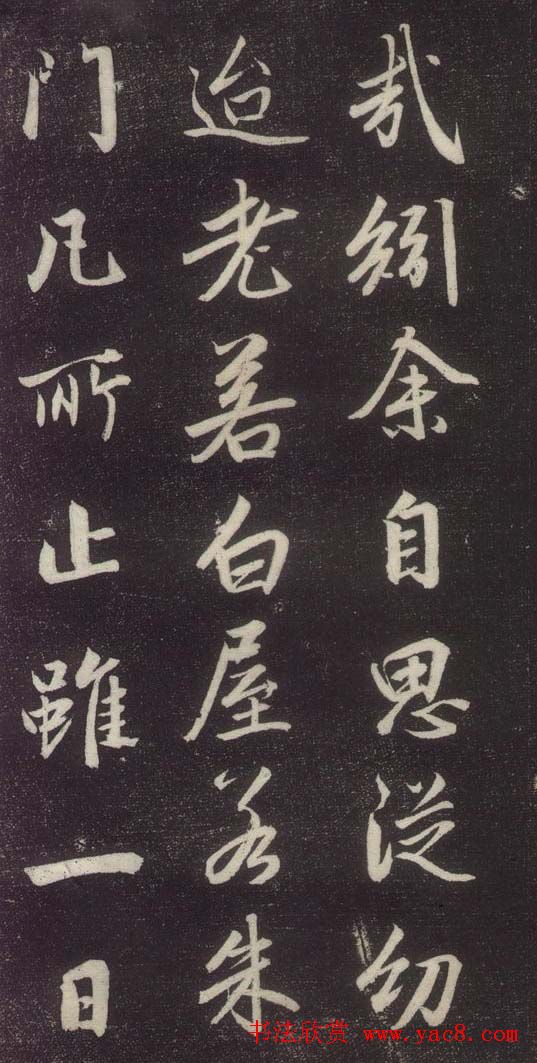 哉矧余自思從幼
迨老若白屋若朱
門凡所止雖一日
书法欣赏 www.yac8.com